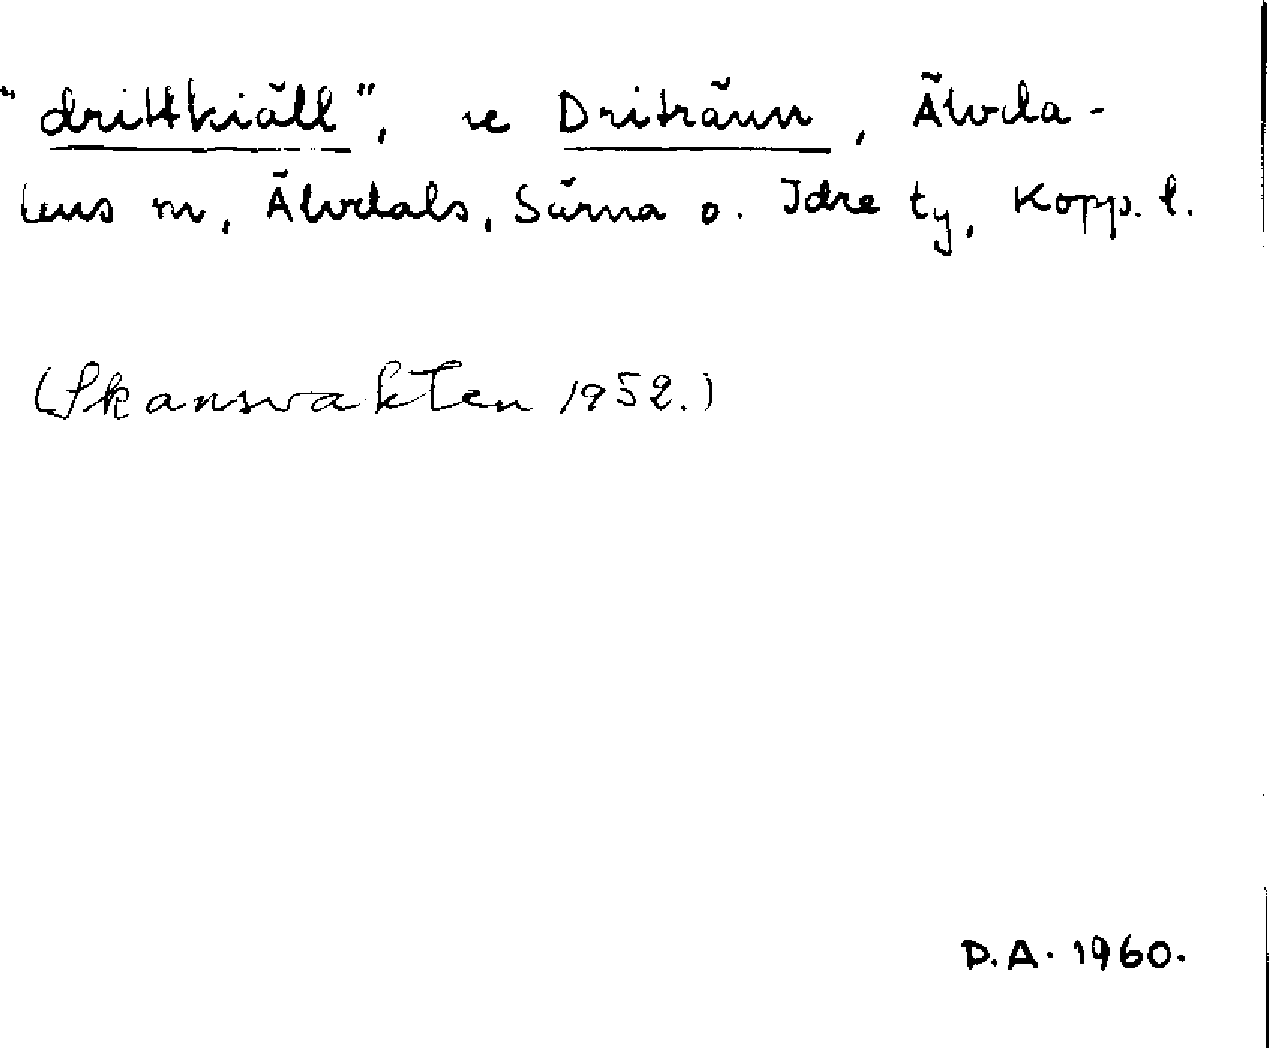 "drittkiäll", se Driträun, Älvda-
lens sn, Älvdals, Särna o. Idre ty, Kopp. l.
(Skansvakten 1952.)
D.A. 1960.